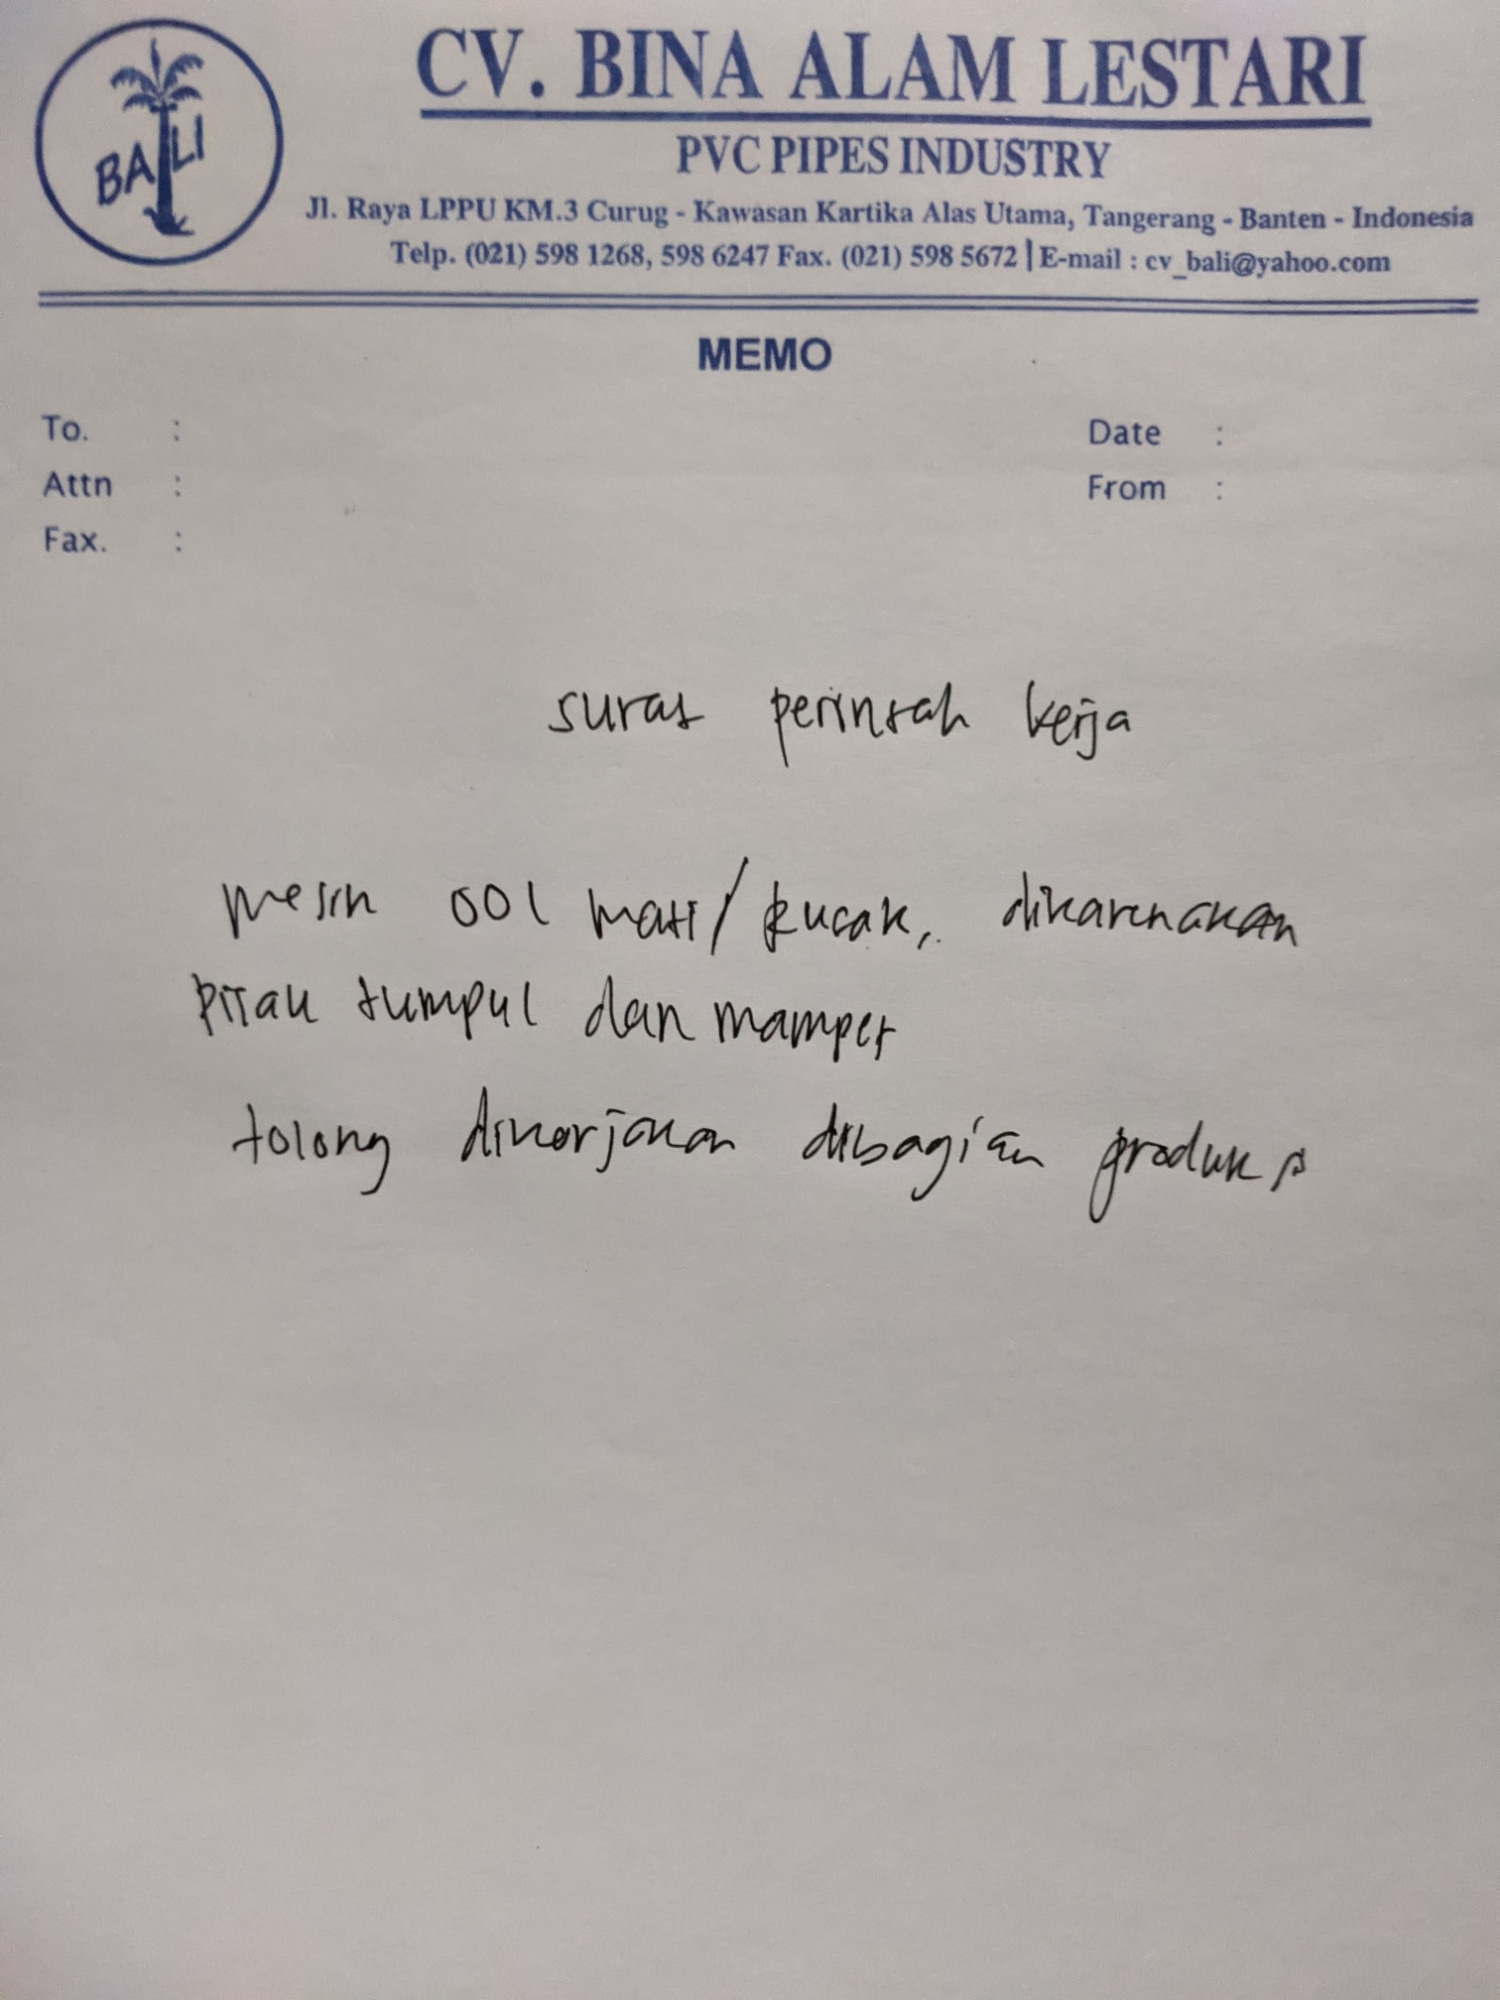 BALI
CV. BINA ALAM LESTARI
PVC PIPES INDUSTRY
Jl. Raya LPPU KM.3 Curug - Kawasan Kartika Alas Utama, Tangerang - Banten - Indonesia
Telp. (021) 598 1268, 598 6247 Fax. (021) 598 5672 | E-mail : cv_bali@yahoo.com
MEMO
To. :
Attn :
Fax. :
Date :
From :
surat perintah kerja
mesin 001 mati/rusak, dikarenakan
pisau tumpul dan mampet
tolong dikerjakan dibagian produksi